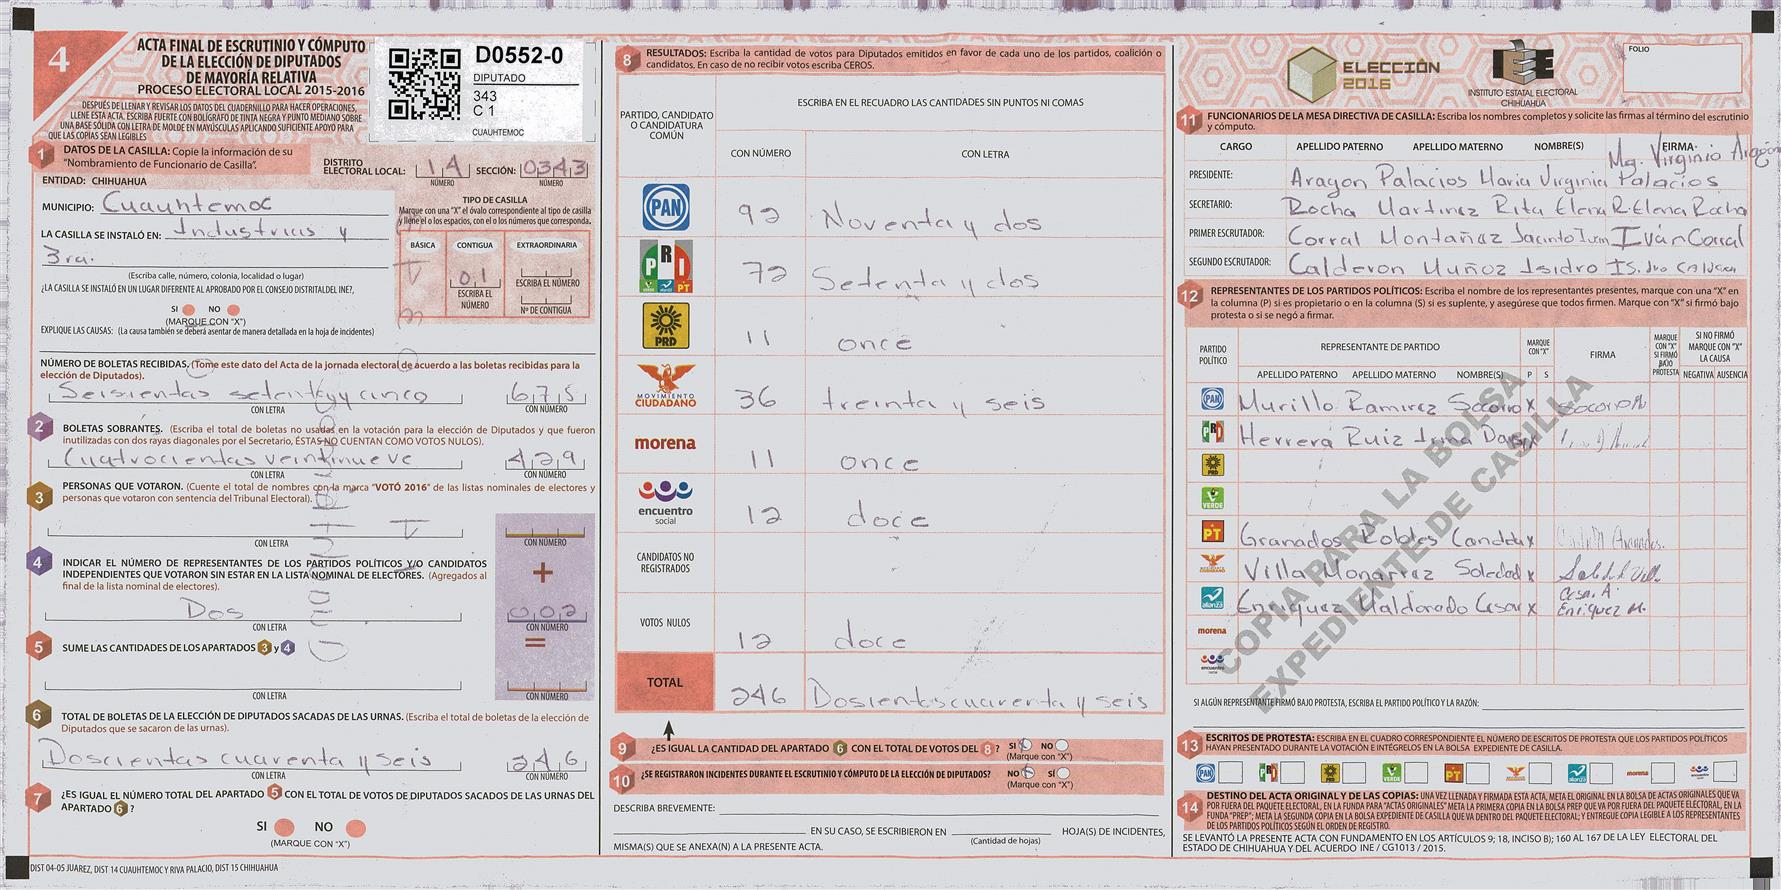 4
ACTA FINAL DE ESCRUTINIO Y CÓMPUTO
DE LA ELECCIÓN DE DIPUTADOS
DE MAYORÍA RELATIVA
PROCESO ELECTORAL LOCAL 2015-2016
DESPUÉS DE LLENAR Y REVISAR LOS DATOS DEL CUADERNILLO PARA HACER OPERACIONES,
LLENE ESTA ACTA. ESCRIBA FUERTE CON BOLÍGRAFO DE TINTA NEGRA Y PUNTO MEDIANO SOBRE
UNA BASE SÓLIDA CON LETRA DE MOLDE EN MAYÚSCULAS APLICANDO SUFICIENTE APOYO PARA
QUE LAS COPIAS SEAN LEGIBLES
D0552-0
DIPUTADO
343
C 1
CUAUHTEMOC
1 DATOS DE LA CASILLA: Copie la información de su
"Nombramiento de Funcionario de Casilla".
DISTRITO
ELECTORAL LOCAL: 14 SECCIÓN: 0343
NÚMERO NÚMERO
ENTIDAD: CHIHUAHUA
MUNICIPIO: Cuauhtemoc
LA CASILLA SE INSTALÓ EN: Industrias y
3ra.
(Escriba calle, número, colonia, localidad o lugar)
TIPO DE CASILLA
Marque con una "X" el óvalo correspondiente al tipo de casilla
y llene el o los espacios, con el o los números que corresponda.
BÁSICA CONTIGUA EXTRAORDINARIA
01
ESCRIBA EL NÚMERO ESCRIBA EL NÚMERO
Nº DE CONTIGUA
¿LA CASILLA SE INSTALÓ EN UN LUGAR DIFERENTE AL APROBADO POR EL CONSEJO DISTRITAL DEL INE?,
SI NO
(MARQUE CON "X")
EXPLIQUE LAS CAUSAS: (La causa también se deberá asentar de manera detallada en la hoja de incidentes)
NÚMERO DE BOLETAS RECIBIDAS. (Tome este dato del Acta de la jornada electoral de acuerdo a las boletas recibidas para la
elección de Diputados).
Seisientas setenta y cinco 675
CON LETRA CON NÚMERO
2 BOLETAS SOBRANTES. (Escriba el total de boletas no usadas en la votación para la elección de Diputados y que fueron
inutilizadas con dos rayas diagonales por el Secretario, ÉSTAS NO CUENTAN COMO VOTOS NULOS).
Cuatrocientas veintinueve 429
CON LETRA CON NÚMERO
3 PERSONAS QUE VOTARON. (Cuente el total de nombres con la marca "VOTÓ 2016" de las listas nominales de electores y
personas que votaron con sentencia del Tribunal Electoral).
CON LETRA CON NÚMERO
4 INDICAR EL NÚMERO DE REPRESENTANTES DE LOS PARTIDOS POLÍTICOS Y/O CANDIDATOS
INDEPENDIENTES QUE VOTARON SIN ESTAR EN LA LISTA NOMINAL DE ELECTORES. (Agregados al
final de la lista nominal de electores).
+
Dos 002
CON LETRA CON NÚMERO
=
5 SUME LAS CANTIDADES DE LOS APARTADOS 3 y 4
CON LETRA CON NÚMERO
6 TOTAL DE BOLETAS DE LA ELECCIÓN DE DIPUTADOS SACADAS DE LAS URNAS. (Escriba el total de boletas de la elección de
Diputados que se sacaron de las urnas).
Doscientas cuarenta y seis 246
CON LETRA CON NÚMERO
7 ¿ES IGUAL EL NÚMERO TOTAL DEL APARTADO 5 CON EL TOTAL DE VOTOS DE DIPUTADOS SACADOS DE LAS URNAS DEL
APARTADO 6?
SI NO
(MARQUE CON "X")
DIST 04-05 JUAREZ, DIST 14 CUAUHTEMOC Y RIVA PALACIO, DIST 15 CHIHUAHUA
8 RESULTADOS: Escriba la cantidad de votos para Diputados emitidos en favor de cada uno de los partidos, coalición o
candidatos. En caso de no recibir votos escriba CEROS.
PARTIDO, CANDIDATO
O CANDIDATURA
COMÚN
ESCRIBA EN EL RECUADRO LAS CANTIDADES SIN PUNTOS NI COMAS
CON NÚMERO CON LETRA
PAN 92 Noventa y dos
PRI VERDE alianza PT 72 Setenta y dos
PRD 11 once
MOVIMIENTO CIUDADANO 36 treinta y seis
morena 11 once
encuentro social 12 doce
CANDIDATOS NO
REGISTRADOS
VOTOS NULOS 12 doce
TOTAL 246 Dosientscuarenta y seis
9 ¿ES IGUAL LA CANTIDAD DEL APARTADO 6 CON EL TOTAL DE VOTOS DEL 8? SI NO
(Marque con "X")
10 ¿SE REGISTRARON INCIDENTES DURANTE EL ESCRUTINIO Y CÓMPUTO DE LA ELECCIÓN DE DIPUTADOS? NO SÍ
(Marque con "X")
DESCRIBA BREVEMENTE:
EN SU CASO, SE ESCRIBIERON EN HOJA(S) DE INCIDENTES,
(Cantidad de hojas)
MISMA(S) QUE SE ANEXA(N) A LA PRESENTE ACTA.
ELECCIÓN
2016
IEE
INSTITUTO ESTATAL ELECTORAL
CHIHUAHUA
FOLIO
11 FUNCIONARIOS DE LA MESA DIRECTIVA DE CASILLA: Escriba los nombres completos y solicite las firmas al término del escrutinio
y cómputo.
CARGO APELLIDO PATERNO APELLIDO MATERNO NOMBRE(S) FIRMA
Ma. Virginia Aragon
PRESIDENTE: Aragon Palacios Maria Virginia Palacios
SECRETARIO: Rocha Martinez Rita Elena R. Elena Rocha
PRIMER ESCRUTADOR: Corral Montañaz Jacinto Ivan Iván Corral
SEGUNDO ESCRUTADOR: Calderon Muñoz Isidro
12 REPRESENTANTES DE LOS PARTIDOS POLÍTICOS: Escriba el nombre de los representantes presentes, marque con una "X" en
la columna (P) si es propietario o en la columna (S) si es suplente, y asegúrese que todos firmen. Marque con "X" si firmó bajo
protesta o si se negó a firmar.
PARTIDO POLÍTICO REPRESENTANTE DE PARTIDO MARQUE CON "X" FIRMA MARQUE CON "X" SI FIRMÓ BAJO PROTESTA SI NO FIRMÓ MARQUE CON "X" LA CAUSA
APELLIDO PATERNO APELLIDO MATERNO NOMBRE(S) P S NEGATIVA AUSENCIA
PAN Murillo Ramirez Socorro X
PRI Herrera Ruiz Irma
PRD
VERDE
PT Granados Robles X
Villa Monarrez Soledad X Soledad Villa
alianza Enriquez Maldonado Cesar X Cesa. A. Enriquez M.
morena
encuentro social
COPIA PARA LA BOLSA
EXPEDIENTE DE CASILLA
SI ALGÚN REPRESENTANTE FIRMÓ BAJO PROTESTA, ESCRIBA EL PARTIDO POLÍTICO Y LA RAZÓN:
13 ESCRITOS DE PROTESTA: ESCRIBA EN EL CUADRO CORRESPONDIENTE EL NÚMERO DE ESCRITOS DE PROTESTA QUE LOS PARTIDOS POLÍTICOS
HAYAN PRESENTADO DURANTE LA VOTACIÓN E INTÉGRELOS EN LA BOLSA EXPEDIENTE DE CASILLA.
PAN PRI PRD VERDE PT alianza morena
14 DESTINO DEL ACTA ORIGINAL Y DE LAS COPIAS: UNA VEZ LLENADA Y FIRMADA ESTA ACTA, META EL ORIGINAL EN LA BOLSA DE ACTAS ORIGINALES QUE VA
POR FUERA DEL PAQUETE ELECTORAL, EN LA FUNDA PARA "ACTAS ORIGINALES" META LA PRIMERA COPIA EN LA BOLSA PREP QUE VA POR FUERA DEL PAQUETE ELECTORAL, EN LA
FUNDA "PREP"; META LA SEGUNDA COPIA EN LA BOLSA EXPEDIENTE DE CASILLA QUE VA DENTRO DEL PAQUETE ELECTORAL; Y ENTREGUE COPIA LEGIBLE A LOS REPRESENTANTES
DE LOS PARTIDOS POLÍTICOS SEGÚN EL ORDEN DE REGISTRO.
SE LEVANTÓ LA PRESENTE ACTA CON FUNDAMENTO EN LOS ARTÍCULOS 9; 18, INCISO B); 160 AL 167 DE LA LEY ELECTORAL DEL
ESTADO DE CHIHUAHUA Y DEL ACUERDO INE / CG1013 / 2015.